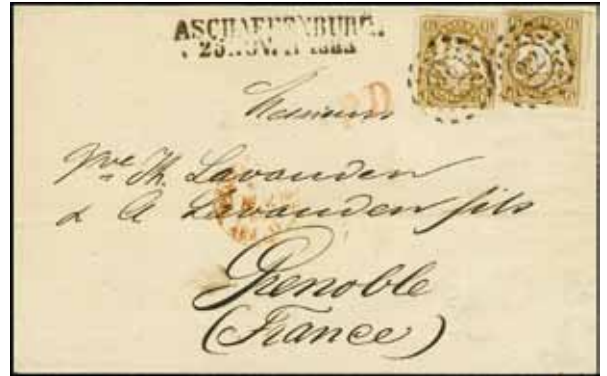 ASCHAFFENBURG.
25 NOV.
PD
Messieurs
Vve Th. Lavanden
& A Lavanden fils
Grenoble
(France)